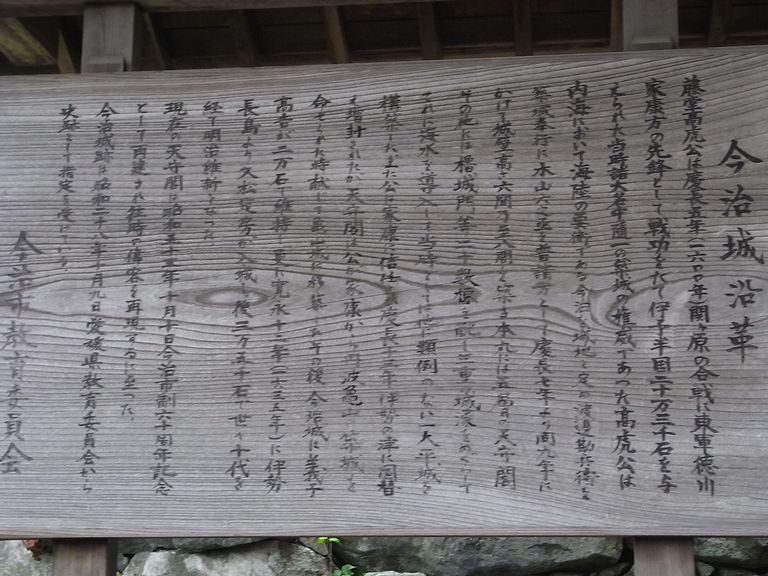 今治城沿革
藤堂高虎公は慶長五年(一六〇〇年)関ヶ原の合戦に東軍徳川
家康方の先鋒として戦功をたて伊予半国二十万三千石を与
えられた当時諸大名中随一の築城の権威であつた高虎公は
内海において海陸の要衝である今治を城地と定め渡邉勘兵衛を
築城奉行に木山六之丞を普請方として慶長七年より同九年に
かけて城壁高さ六間乃至八間を築き本丸には五層の天守閣
その他には櫓、城門等二十数棟を配し三重の城濠をめぐらして
これに海水を導入した当時としては他に類例のない一大平城を
構築したまた公は家康の信任厚く慶長十三年伊勢の津に国替
え増封されたが天守閣は公が家康から丹波亀山に築城を
命ぜられた時献じて亀山城に移築されその後今治城は義子
高吉が二万石で維持し更に寛永十二年(一六三五年)に伊勢
長島より久松定房が入城し後三万五千石で世々十代を
経て明治維新となつた
現在の天守閣は昭和五十五年十月十日今治市制六十周年記念
として再建され往時の偉容を再現するに至つた
今治城跡は昭和二十八年十月九日愛媛県教育委員会から
史跡として指定を受けている
今治市教育委員会